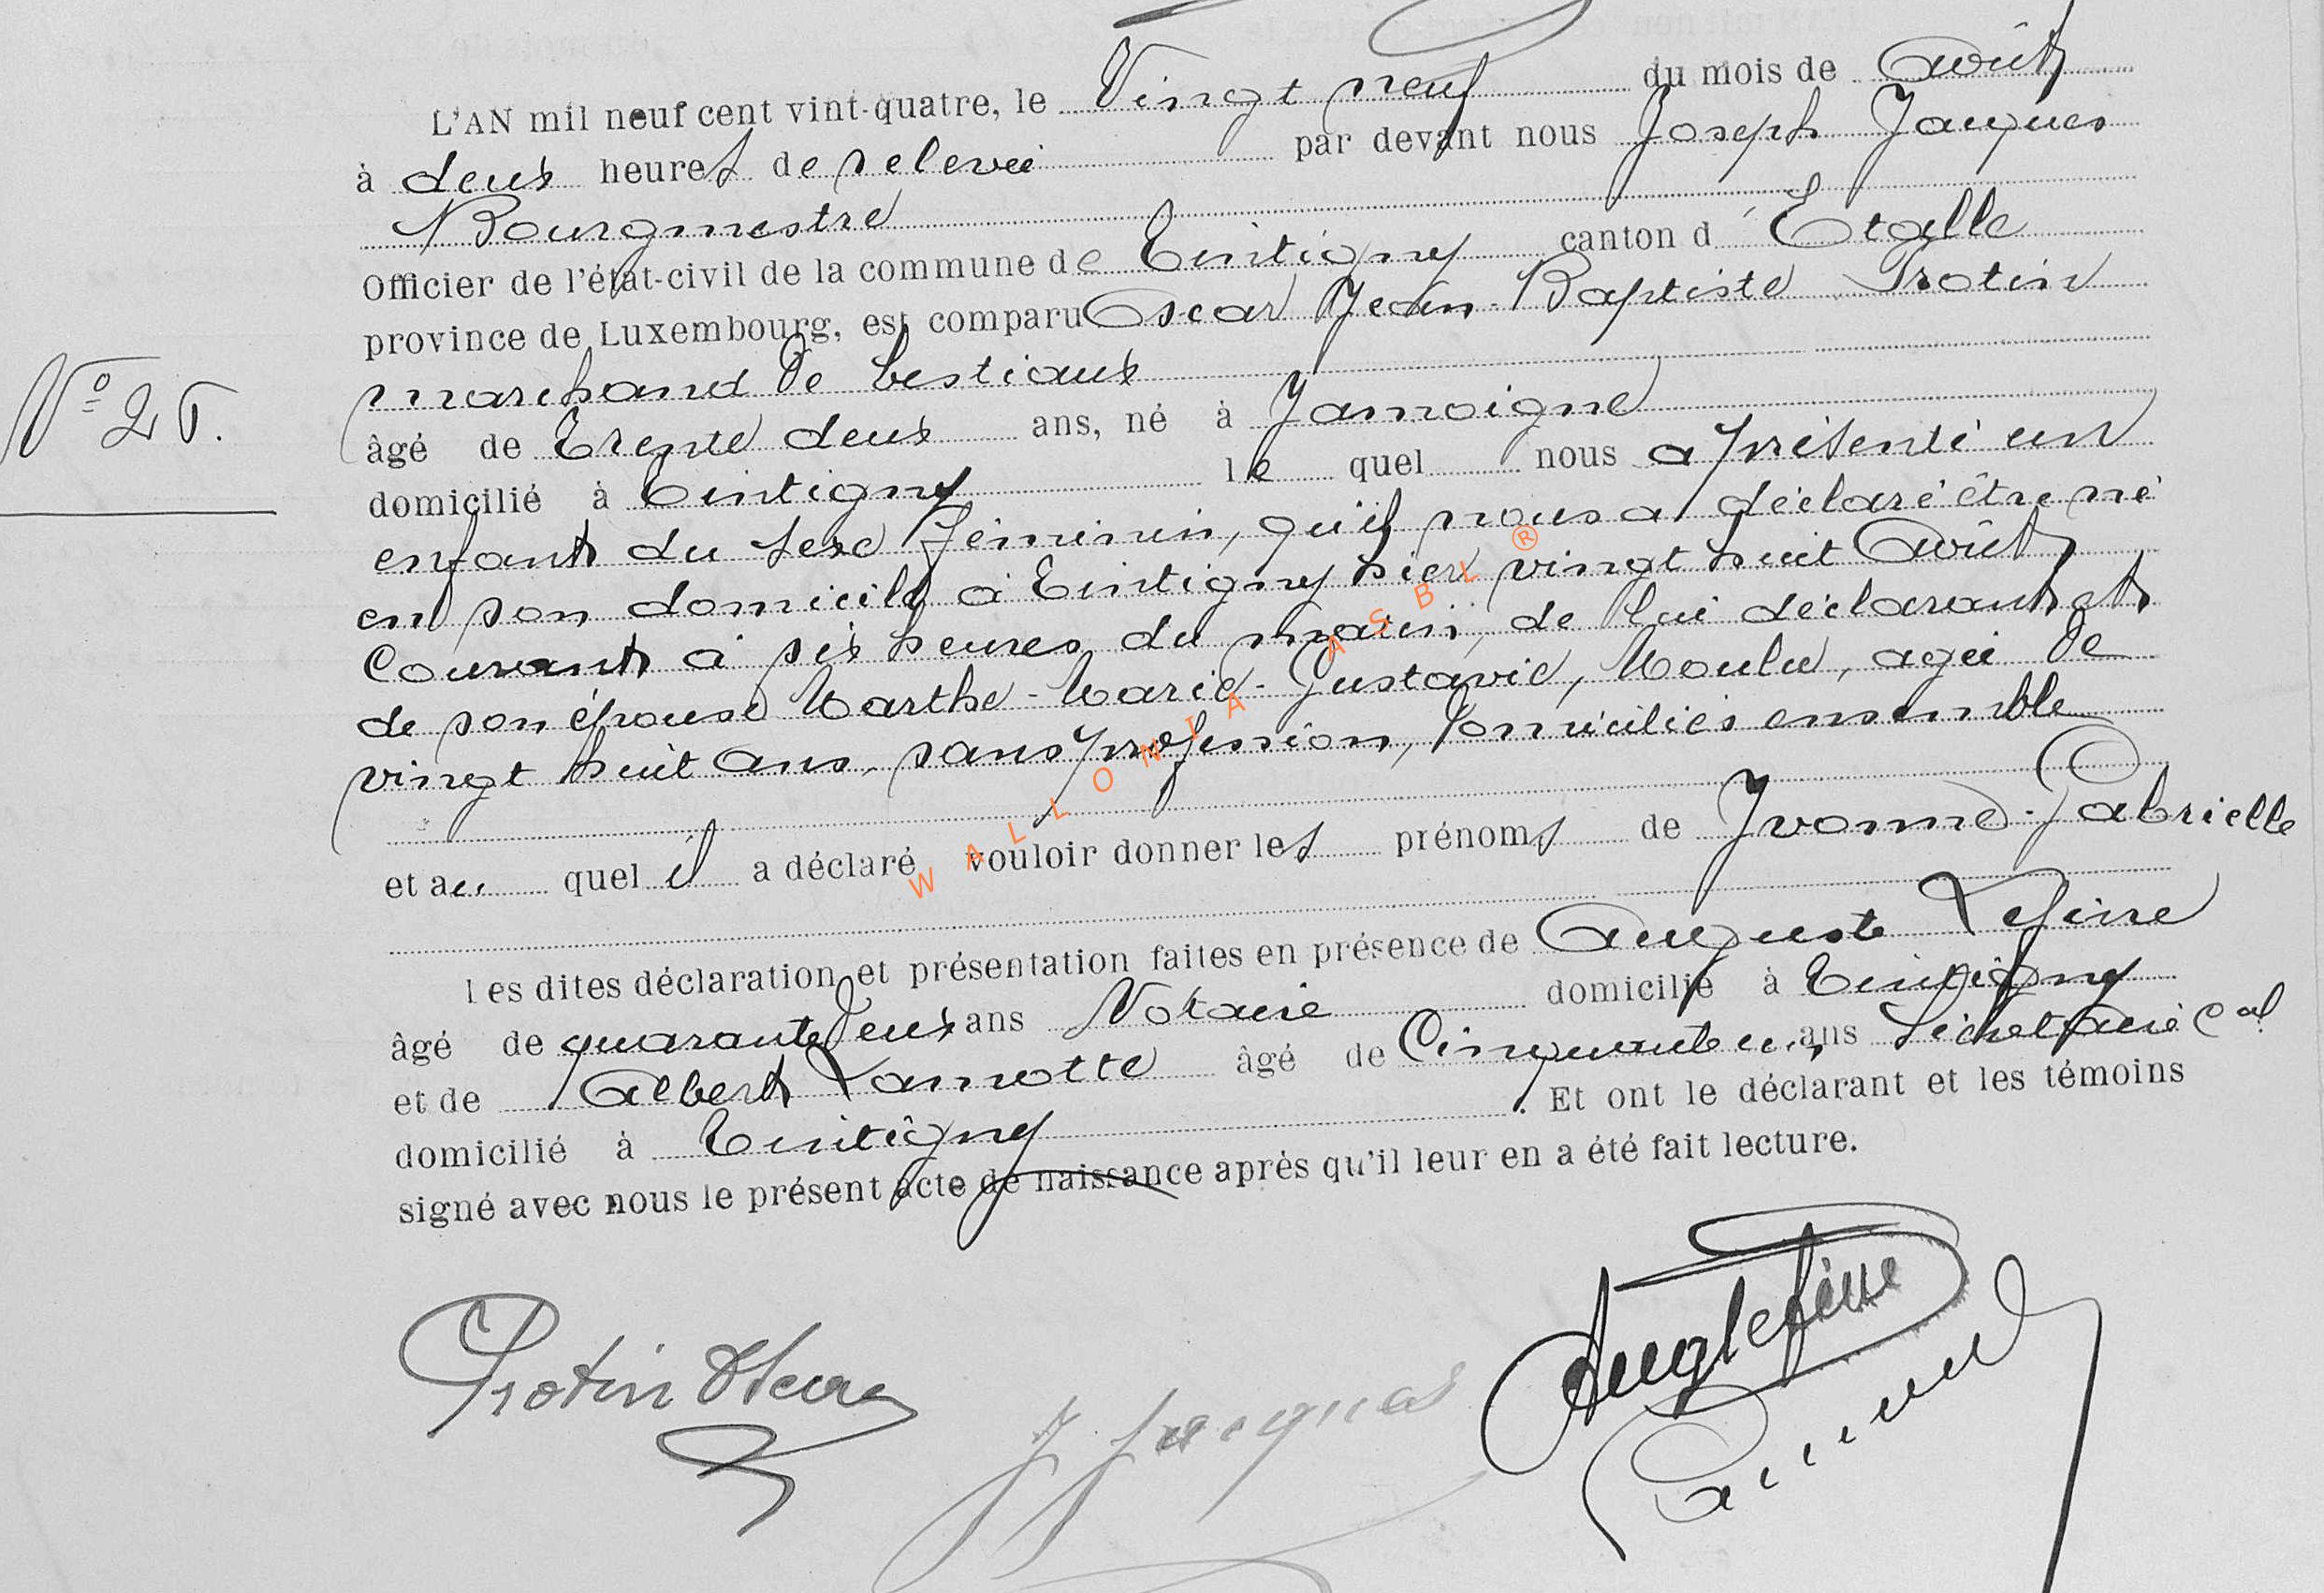 L'AN mil neuf cent vint-quatre, le Vingt neuf du mois de Août
à deux heures de relevée par devant nous Joseph Jacques
Bourgmestre
Officier de l'état-civil de la commune de Tintigny canton d'Etalle
province de Luxembourg, est comparu Oscar Jean-Baptiste Protin
marchand de bestiaux
âgé de Trente deux ans, né à Jamoigne
N° 25.
domicilié à Tintigny lequel nous a présenté un
enfant du sexe féminin, qu'il nous a déclaré être né
en son domicile à Tintigny hier vingt huit Août
Courant à six heures du matin, de lui déclarant et
de son épouse Marthe-Marie-Gustavie, Moulu, agée de
vingt huit ans, sans profession, domiciliés ensemble
et au quel il a déclaré vouloir donner les prénoms de Yvonne-Gabrielle
Les dites déclaration et présentation faites en présence de Auguste Lefèvre
âgé de quarante deux ans Notaire domicilié à Tintigny
et de Albert Lamotte âgé de Cinquante un ans Secrétaire Cal
domicilié à Tintigny. Et ont le déclarant et les témoins
signé avec nous le présent acte de naissance après qu'il leur en a été fait lecture.
Protin Oscar
J Jacques
Aug Lefèvre
WALLONIA ASBL ®